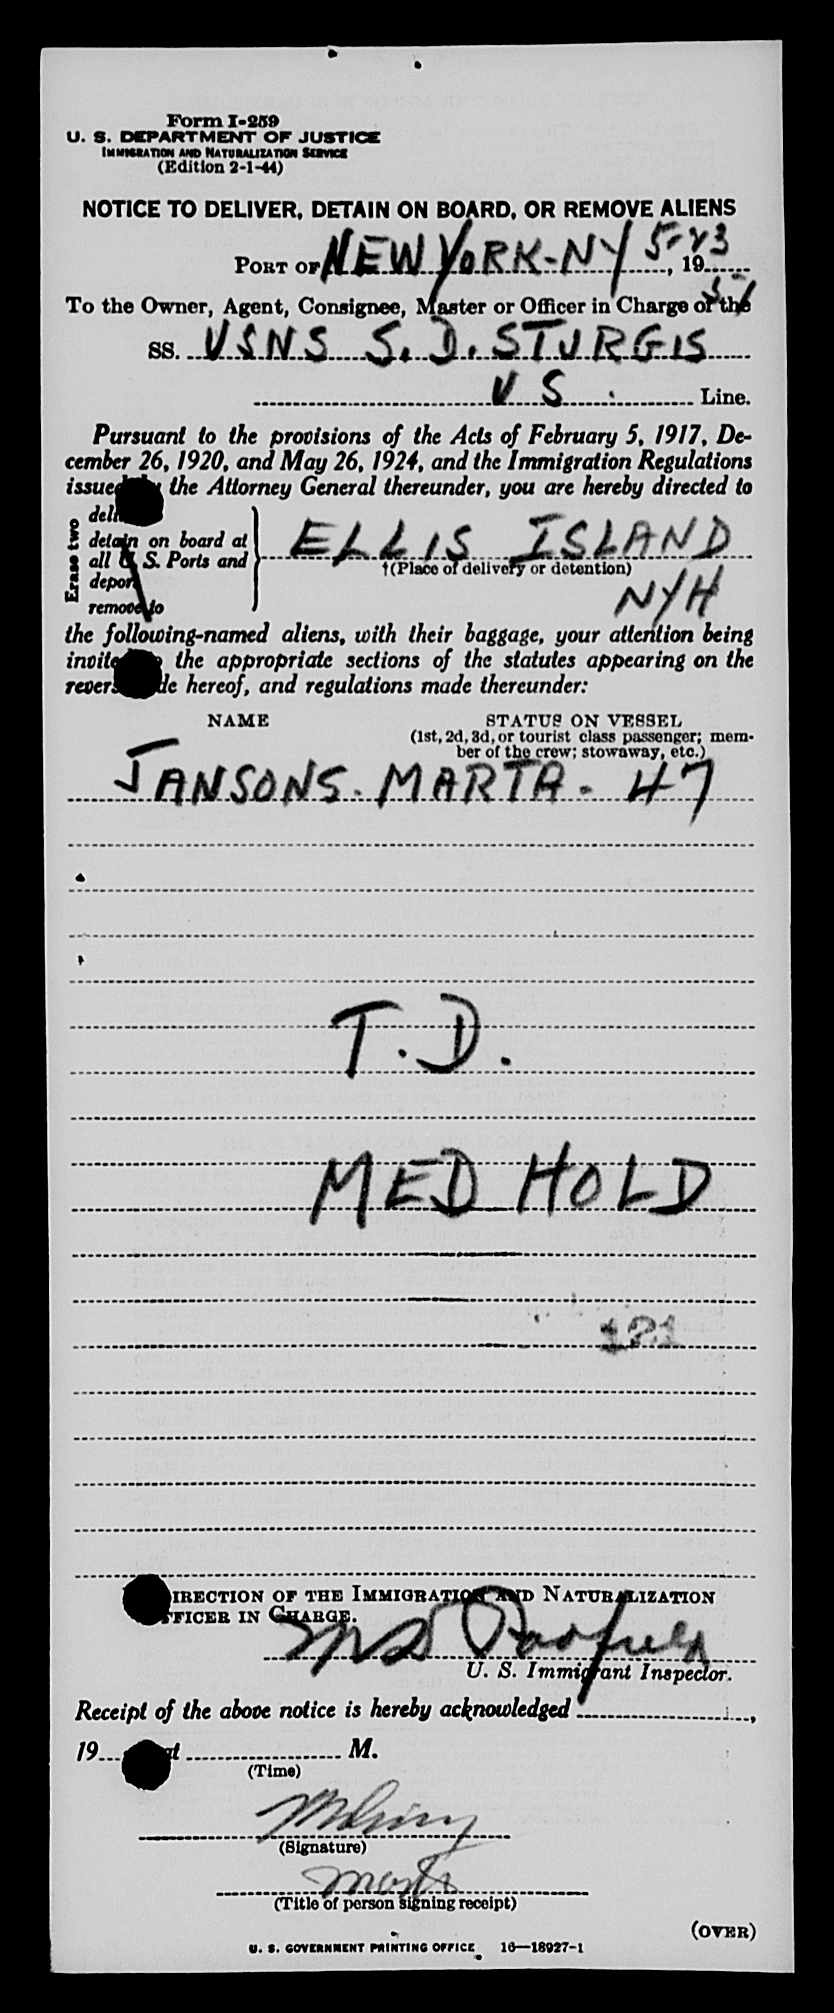 Form I-259
U. S. DEPARTMENT OF JUSTICE
IMMIGRATION AND NATURALIZATION SERVICE
(Edition 2-1-44)
NOTICE TO DELIVER, DETAIN ON BOARD, OR REMOVE ALIENS
PORT OF NEW YORK-NY 5-23, 19
51
To the Owner, Agent, Consignee, Master or Officer in Charge of the
SS. USNS S. D. STURGIS
US Line.
Pursuant to the provisions of the Acts of February 5, 1917, De-
cember 26, 1920, and May 26, 1924, and the Immigration Regulations
issued the Attorney General thereunder, you are hereby directed to
Erase two
detain on board at
all U. S. Ports and
remove to
ELLIS ISLAND
†(Place of delivery or detention)
NYH
the following-named aliens, with their baggage, your attention being
the appropriate sections of the statutes appearing on the
hereof, and regulations made thereunder:
NAME STATUS ON VESSEL
(1st, 2d, 3d, or tourist class passenger; mem-
ber of the crew; stowaway, etc.)
JANSONS. MARTA. 47
T.D.
MED HOLD
121
IRECTION OF THE IMMIGRATION AND NATURALIZATION
FFICER IN CHARGE.
U. S. Immigrant Inspector.
Receipt of the above notice is hereby acknowledged ,
19 at M.
(Time)
(Signature)
(Title of person signing receipt)
(OVER)
U. S. GOVERNMENT PRINTING OFFICE 16—18927-1